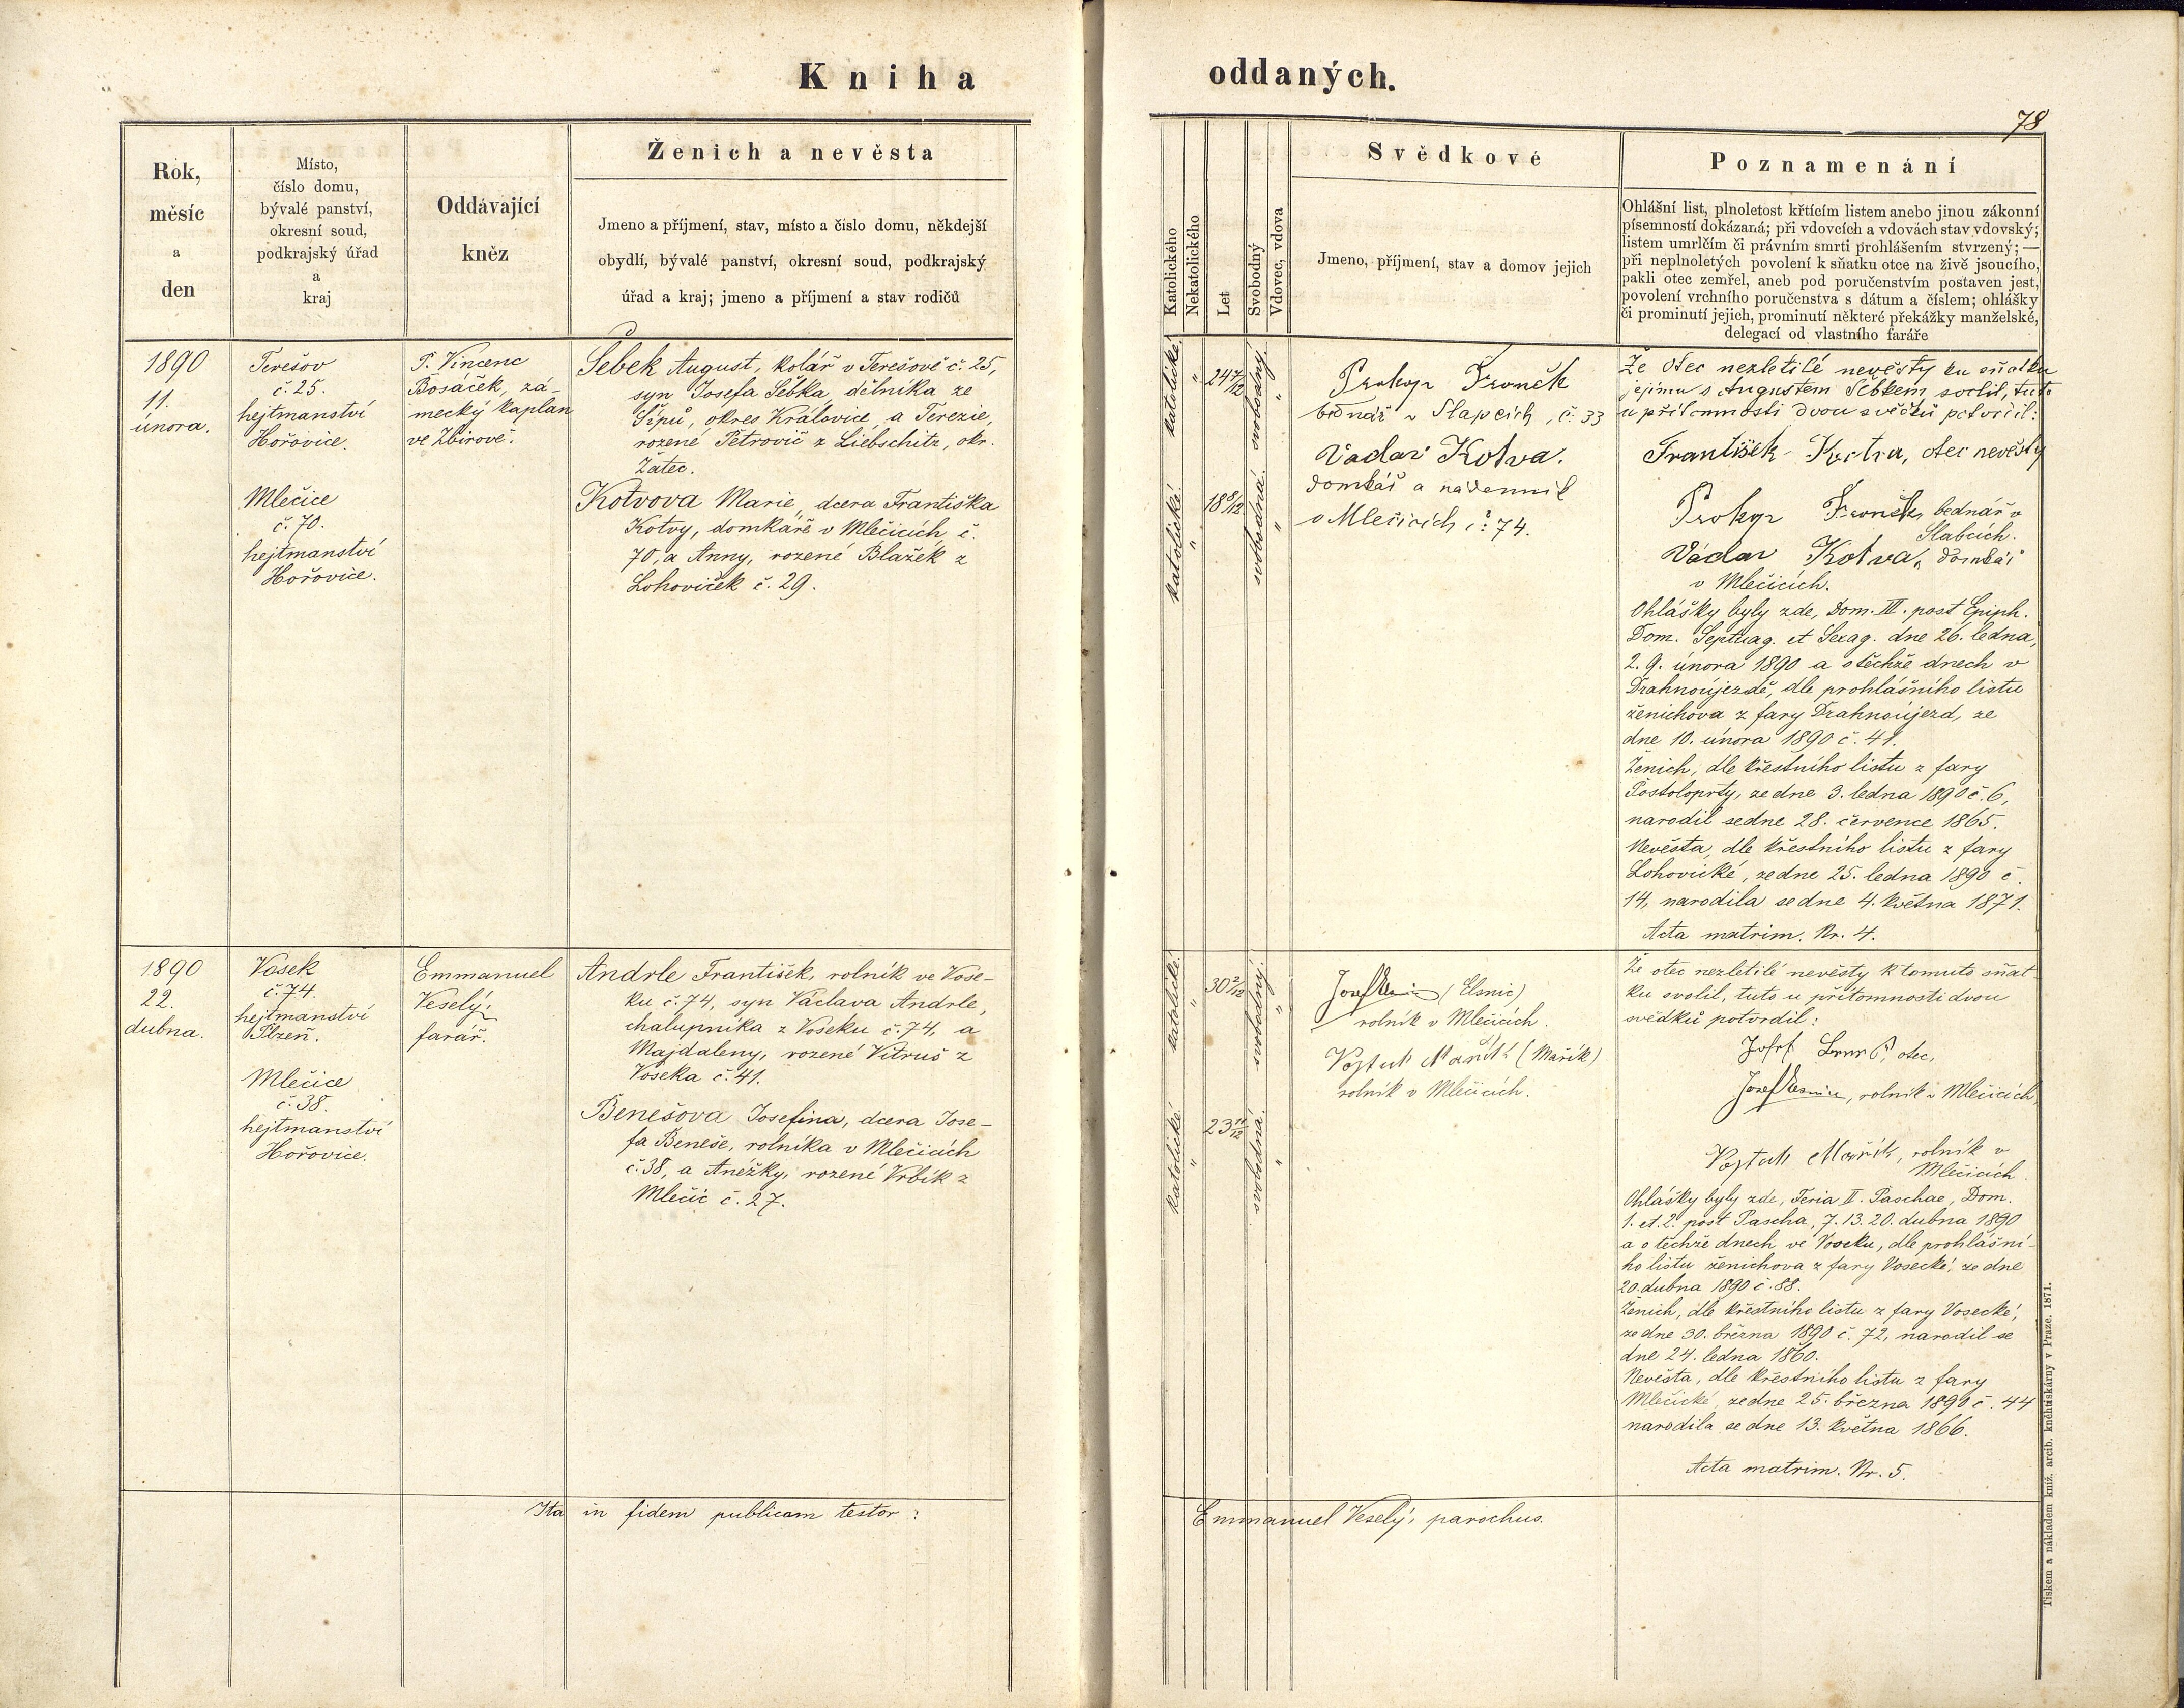 Kniha oddaných.
78
Rok,
měsíc
a
den
Místo,
číslo domu,
bývalé panství,
okresní soud,
podkrajský úřad
a
kraj
Oddávající
kněz
Ženich a nevěsta
Jmeno a příjmení, stav, místo a číslo domu, někdejší
obydlí, bývalé panství, okresní soud, podkrajský
úřad a kraj; jmeno a příjmení a stav rodičů
Katolického
Nekatolického
Let
Svobodný
Vdovec, vdova
Svědkové
Jmeno, příjmení, stav a domov jejich
Poznamenání
Ohlášní list, plnoletost křtícím listem anebo jinou zákonní
písemností dokázaná; při vdovcích a vdovách stav vdovský;
listem umrlčím či právním smrti prohlášením stvrzený; —
při neplnoletých povolení k sňatku otce na živě jsoucího,
pakli otec zemřel, aneb pod poručenstvím postaven jest,
povolení vrchního poručenstva s dátum a číslem; ohlášky
či prominutí jejich, prominutí některé překážky manželské,
delegací od vlastního faráře
1890
11.
února.
Terešov
č. 25.
hejtmanství
Hořovice.
P. Vincenc
Bosáček, zá-
mecký kaplan
ve Zbirově.
Šebek August, kolář v Terešově č. 25,
syn Josefa Šebka, dělníka ze
Šípů, okres Kralovice, a Terezie,
rozené Petrovič z Liebschitz, okr.
Žatec.
Mlečice
č. 70.
hejtmanství
Hořovice.
Kotvova Marie, dcera Františka
Kotvy, domkáře v Mlečicích, č.
70, a Anny, rozené Blažek z
Lohoviček č. 29.
katolické
"
24 7/12
svobodný
"
katolické
"
18 8/12
svobodná
"
Prokop Froněk
bednář v Slapcích, č. 33
Václav Kotva.
domkář a nádenník
v Mlečicích č: 74.
Že otec nezletilé nevěsty ku sňatku
jejímu s Augustem Šebkem svolil, tuto
u přítomnosti dvou svědků potvrdil:
František Kotva, otec nevěsty
Prokop Froněk, bednář v
Slabcích.
Václav Kotva, domkář
v Mlečicích.
Ohlášky byly zde, Dom. III. post Epiph.
Dom. Septuag. et Sexag. dne 26. ledna,
2. 9. února 1890 a o těchže dnech v
Drahnoújezdě, dle prohlášního listu
ženichova z fary Drahnoújezd, ze
dne 10. února 1890 č. 41.
Ženich, dle křestního listu z fary
Postoloprty, ze dne 3. ledna 1890 č. 6,
narodil se dne 28. července 1865.
Nevěsta, dle křestního listu z fary
Lohovické, ze dne 25. ledna 1890 č.
14, narodila se dne 4. května 1871.
Acta matrim. Nr. 4.
1890
22.
dubna.
Vosek
č. 74.
hejtmanství
Plzeň.
Emmanuel
Veselý,
farář.
Andrle František, rolník ve Vose-
ku č. 74, syn Václava Andrle,
chalupníka z Voseku č. 74, a
Majdaleny, rozené Vitruš z
Voseka č. 41.
Mlečice
č. 38.
hejtmanství
Hořovice.
Benešova Josefina, dcera Jose-
fa Beneše, rolníka v Mlečicích
č. 38, a Anežky, rozené Vrbík z
Mlečic č. 27.
katolické
"
30 2/12
svobodný
"
katolické
"
23 11/12
svobodná
"
Josef (Elsnic)
rolník v Mlečicích.
Vojtěch Mařík (Mařík)
rolník v Mlečicích.
Že otec nezletilé nevěsty k tomuto sňat-
ku svolil, tuto u přítomnosti dvou
svědků potvrdil:
Josef Beneš, otec,
Josef Elsnic, rolník v Mlečicích,
Vojtěch Mařík, rolník v
Mlečicích.
Ohlášky byly zde, Feria II. Paschae, Dom.
1. et. 2. post Pascha, 7. 13. 20. dubna 1890
a o těchže dnech ve Voseku, dle prohlášní-
ho listu ženichova z fary Vosecké, ze dne
20. dubna 1890 č. 88.
Ženich, dle křestního listu z fary Vosecké,
ze dne 30. března 1890 č. 72, narodil se
dne 24. ledna 1860.
Nevěsta, dle křestního listu z fary
Mlečické, ze dne 25. března 1890 č. 44
narodila se dne 13. května 1866.
Acta matrim. Nr. 5.
Ita in fidem publicam testor: Emmanuel Veselý, parochus.
Tiskem a nákladem kníž. arcib. kněhtiskárny v Praze. 1871.